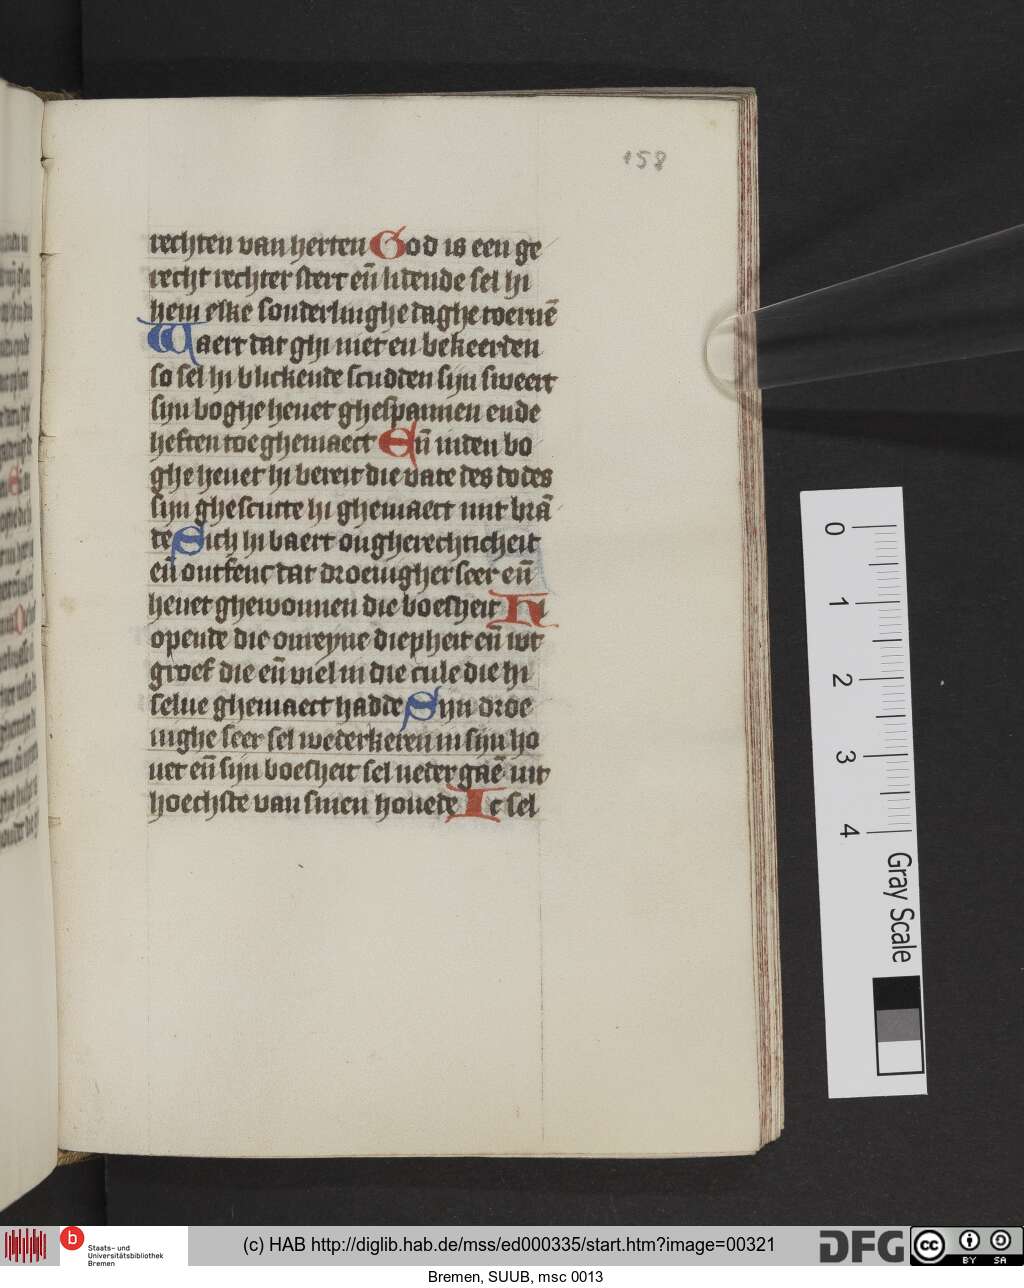 158
rechten van herten God is een ge
recht rechter sterc eñ lidende sel hi
hem elke sonderlinghe daghe toernē
Waert dat ghi niet en bekeerden
so sel hi blickende scudden sijn sweert
sijn boghe heuet ghespannen ende
heften toe ghemaect Eñ inden bo
ghe heuet hi bereit die vate des dodes
sijn ghescutte hi ghemaect mit brā
de Sich hi baert ongherechticheit
eñ ontfenc dat droeuigher seer eñ
heuet ghewonnen die boesheit Hi
opende die onreyne diepheit eñ wt
groef die eñ viel in die cule die hi
selue ghemaect hadde Sijn droe
uighe seer sel wederkeren in sijn ho
uet eñ sijn boesheit sel neder gaē int
hoechste van sinen houede Ic sel
0
1
2
3
4
Gray Scale
b
Staats- und
Universitätsbibliothek
Bremen
(c) HAB http://diglib.hab.de/mss/ed000335/start.htm?image=00321
DFG
cc
BY SA
Bremen, SUUB, msc 0013